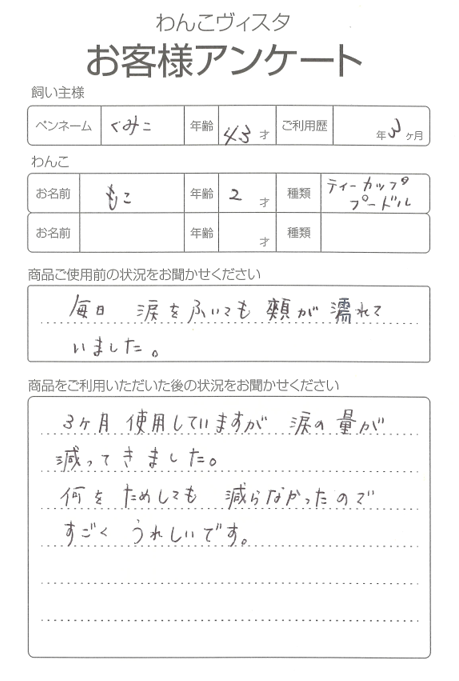 わんこヴィスタ
お客様アンケート
飼い主様
ペンネーム ぐみこ 年齢 43 才 ご利用歴 年 3 ヶ月
わんこ
お名前 もこ 年齢 2 才 種類 ティーカップ
プードル
お名前 年齢 才 種類
商品ご使用前の状況をお聞かせください
毎日 涙をふいても 頬が 濡れて
いました。
商品をご利用いただいた後の状況をお聞かせください
3ヶ月 使用していますが 涙の量が
減ってきました。
何を ためしても 減らなかったので
すごく うれしいです。